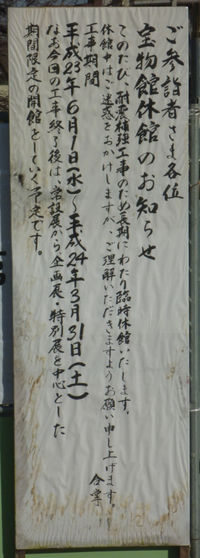 ご参詣者さま各位
宝物館休館のお知らせ
このたび、耐震補強工事のため長期にわたり臨時休館いたします。
休館中はご迷惑をおかけしますが、ご理解いただきますようお願い申し上げます。
合掌
工事期間
平成23年6月1日(水)~平成24年3月31日(土)
なお今回の工事終了後は、常設展から企画展・特別展を中心とした
期間限定の開館をしていく予定です。